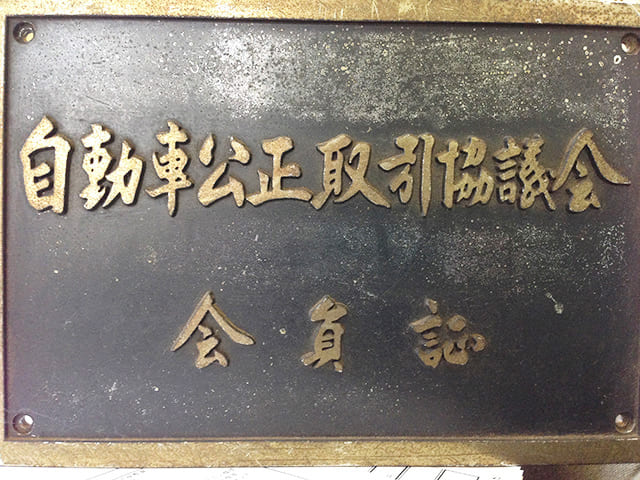 自動車公正取引協議会
会員証